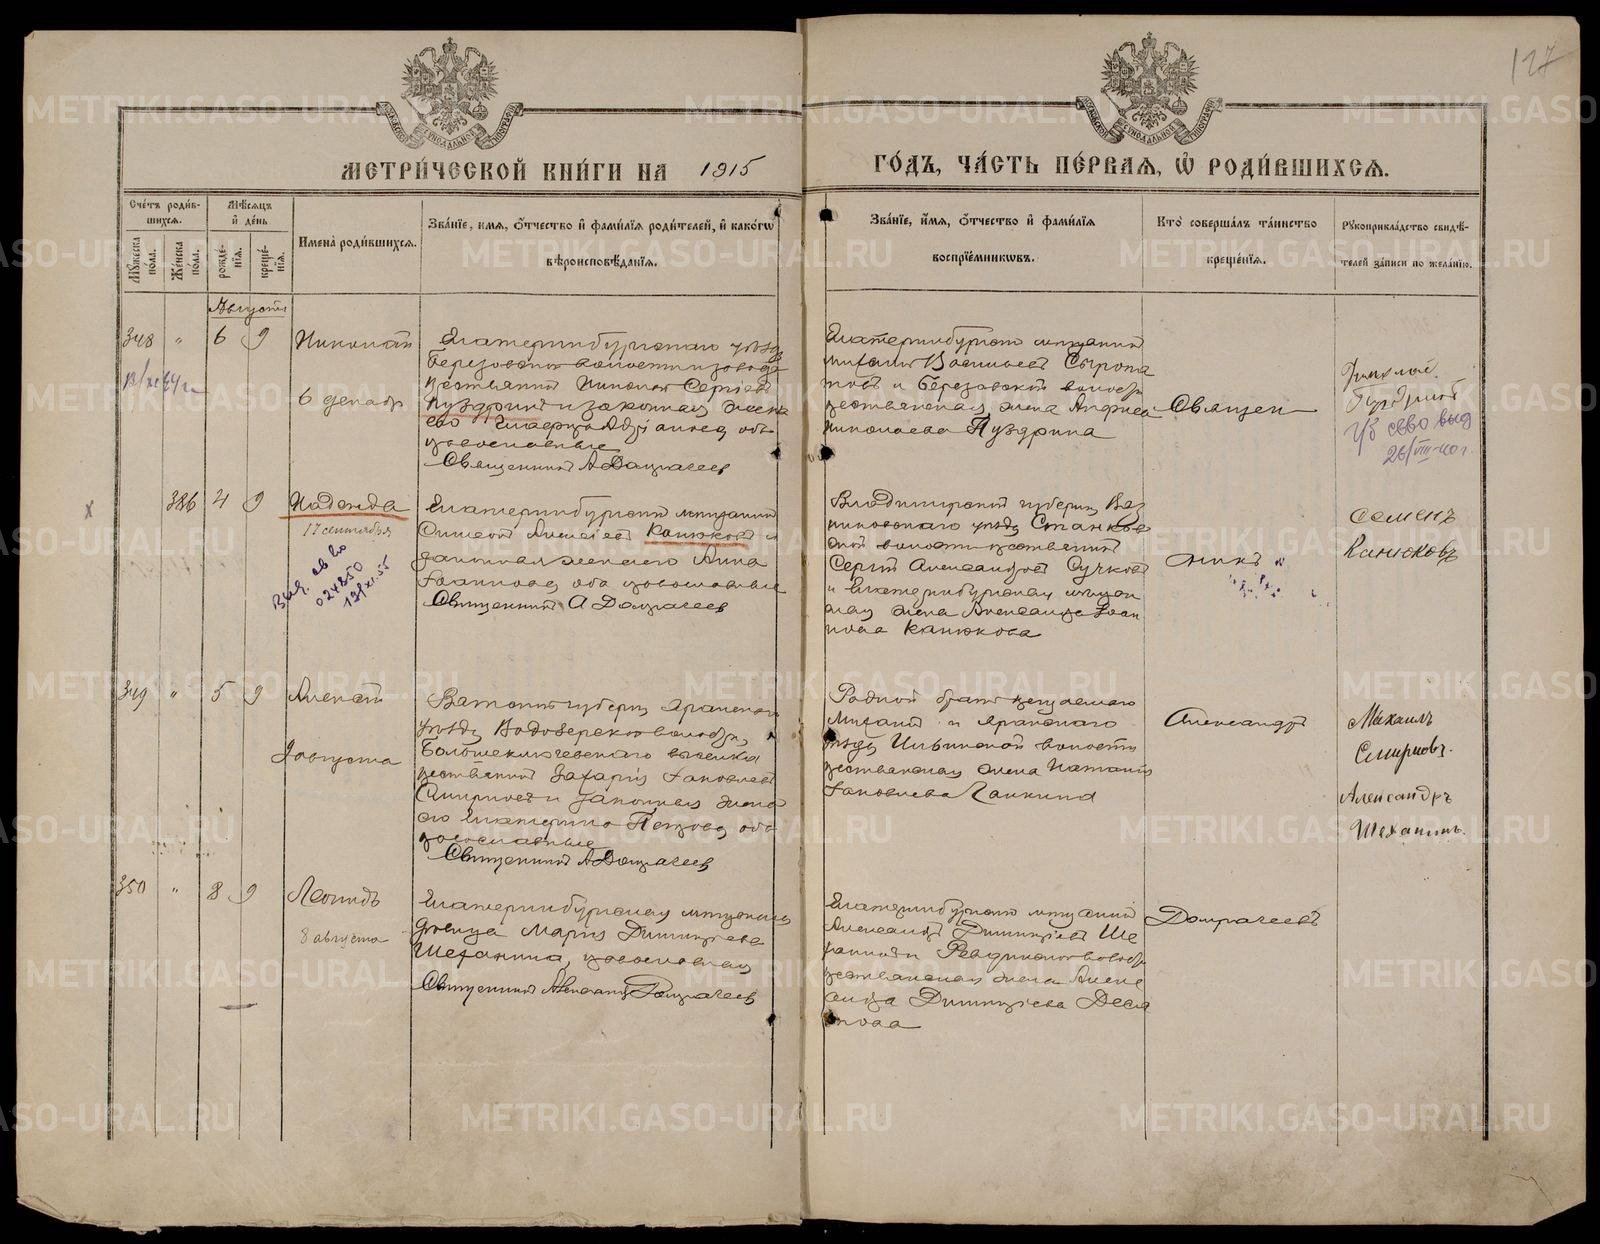 127
МЕТРИ́ЧЕСКОЙ КНИ́ГИ НА 1915
ГО́ДЪ, ЧА́СТЬ ПЕ́РВАЯ, Ѡ҆ РОДИ́ВШИХСЯ.
Сче́тъ роди́в-
шихся.
Мꙋ́жеска по́ла.
Же́нска по́ла.
Мѣ́сяцъ
и҆ де́нь
рожде́-
нїя.
креще́-
нїя.
И҆мена̀ роди́вшихся.
Зва́нїе, и҆мя, ѻ҆́тчество и҆ фами́лїя роди́телей, и҆ како́гѡ
вѣроисповѣ́данїя.
Зва́нїе, и҆́мя, ѻ҆́тчество и҆ фами́лїя
воспрїе́мникѡвъ.
Кто̀ соверша́лъ та́инство
креще́нїя.
Рꙋкоприкла́дство свидѣ́-
телей за́писи по жела́нїю.
Августъ
348 " 6 9 Николай
6 декабр
Екатеринбургскаго уѣзда
Березовской волости и завода
крестьянинъ Николай Сергіевъ
Пуздринъ и законная жена
его
православные
Священникъ А Домрачеевъ
Екатеринбургскій мѣщанинъ
Михаилъ Васильевъ Сыропа
товъ и Березовской волости
крестьянская жена
Николаева Пуздрина
Священ
Николай
Пуздринъ
св-во выд
26/VIII-40 г.
386 4 9 Надежда
17 сентября
Выд. св во
024850
Екатеринбургскій мѣщанинъ
Симеонъ Алексѣевъ Канюковъ и
законная жена его Анна
Іоаннова, оба православные
Священникъ А Домрачеевъ
Владимірской губерніи Вяз
никовскаго уѣзда Станков
ской волости крестьянинъ
Сергій Александровъ Сучковъ
и Екатеринбургская мѣщан
ская жена Александра Іоан
нова Канюкова
никъ
Семенъ
Канюковъ
349 " 5 9 Алексѣй
9 августа
Вятской губерніи Яранскаго
уѣзда Водозерской волости,
Большеключевскаго выселка
крестьянинъ Захарій Іаковлевъ
Смирновъ и законная жена
его Екатерина Петрова, оба
православные
Священникъ А Домрачеевъ
Родной братъ крещаемаго
Михаилъ и Яранскаго
уѣзда Ильинской волости
крестьянская жена Наталія
Іаковлева
Александръ
Михаилъ
Смирновъ.
Александръ
Шеханинъ.
350 " 8 9 Леонидъ
8 августа
Екатеринбургская мѣщанская
дѣвица Марія Димитріева
Шеханина, православная
Священникъ Александръ Домрачеевъ
Екатеринбургскій мѣщанинъ
Александръ Димитріевъ Ше
ханинъ и Ревдинской волости
крестьянская жена Алек
сандра Димитріева Деся
това
Домрачеевъ
METRIKI.GASO-URAL.RU